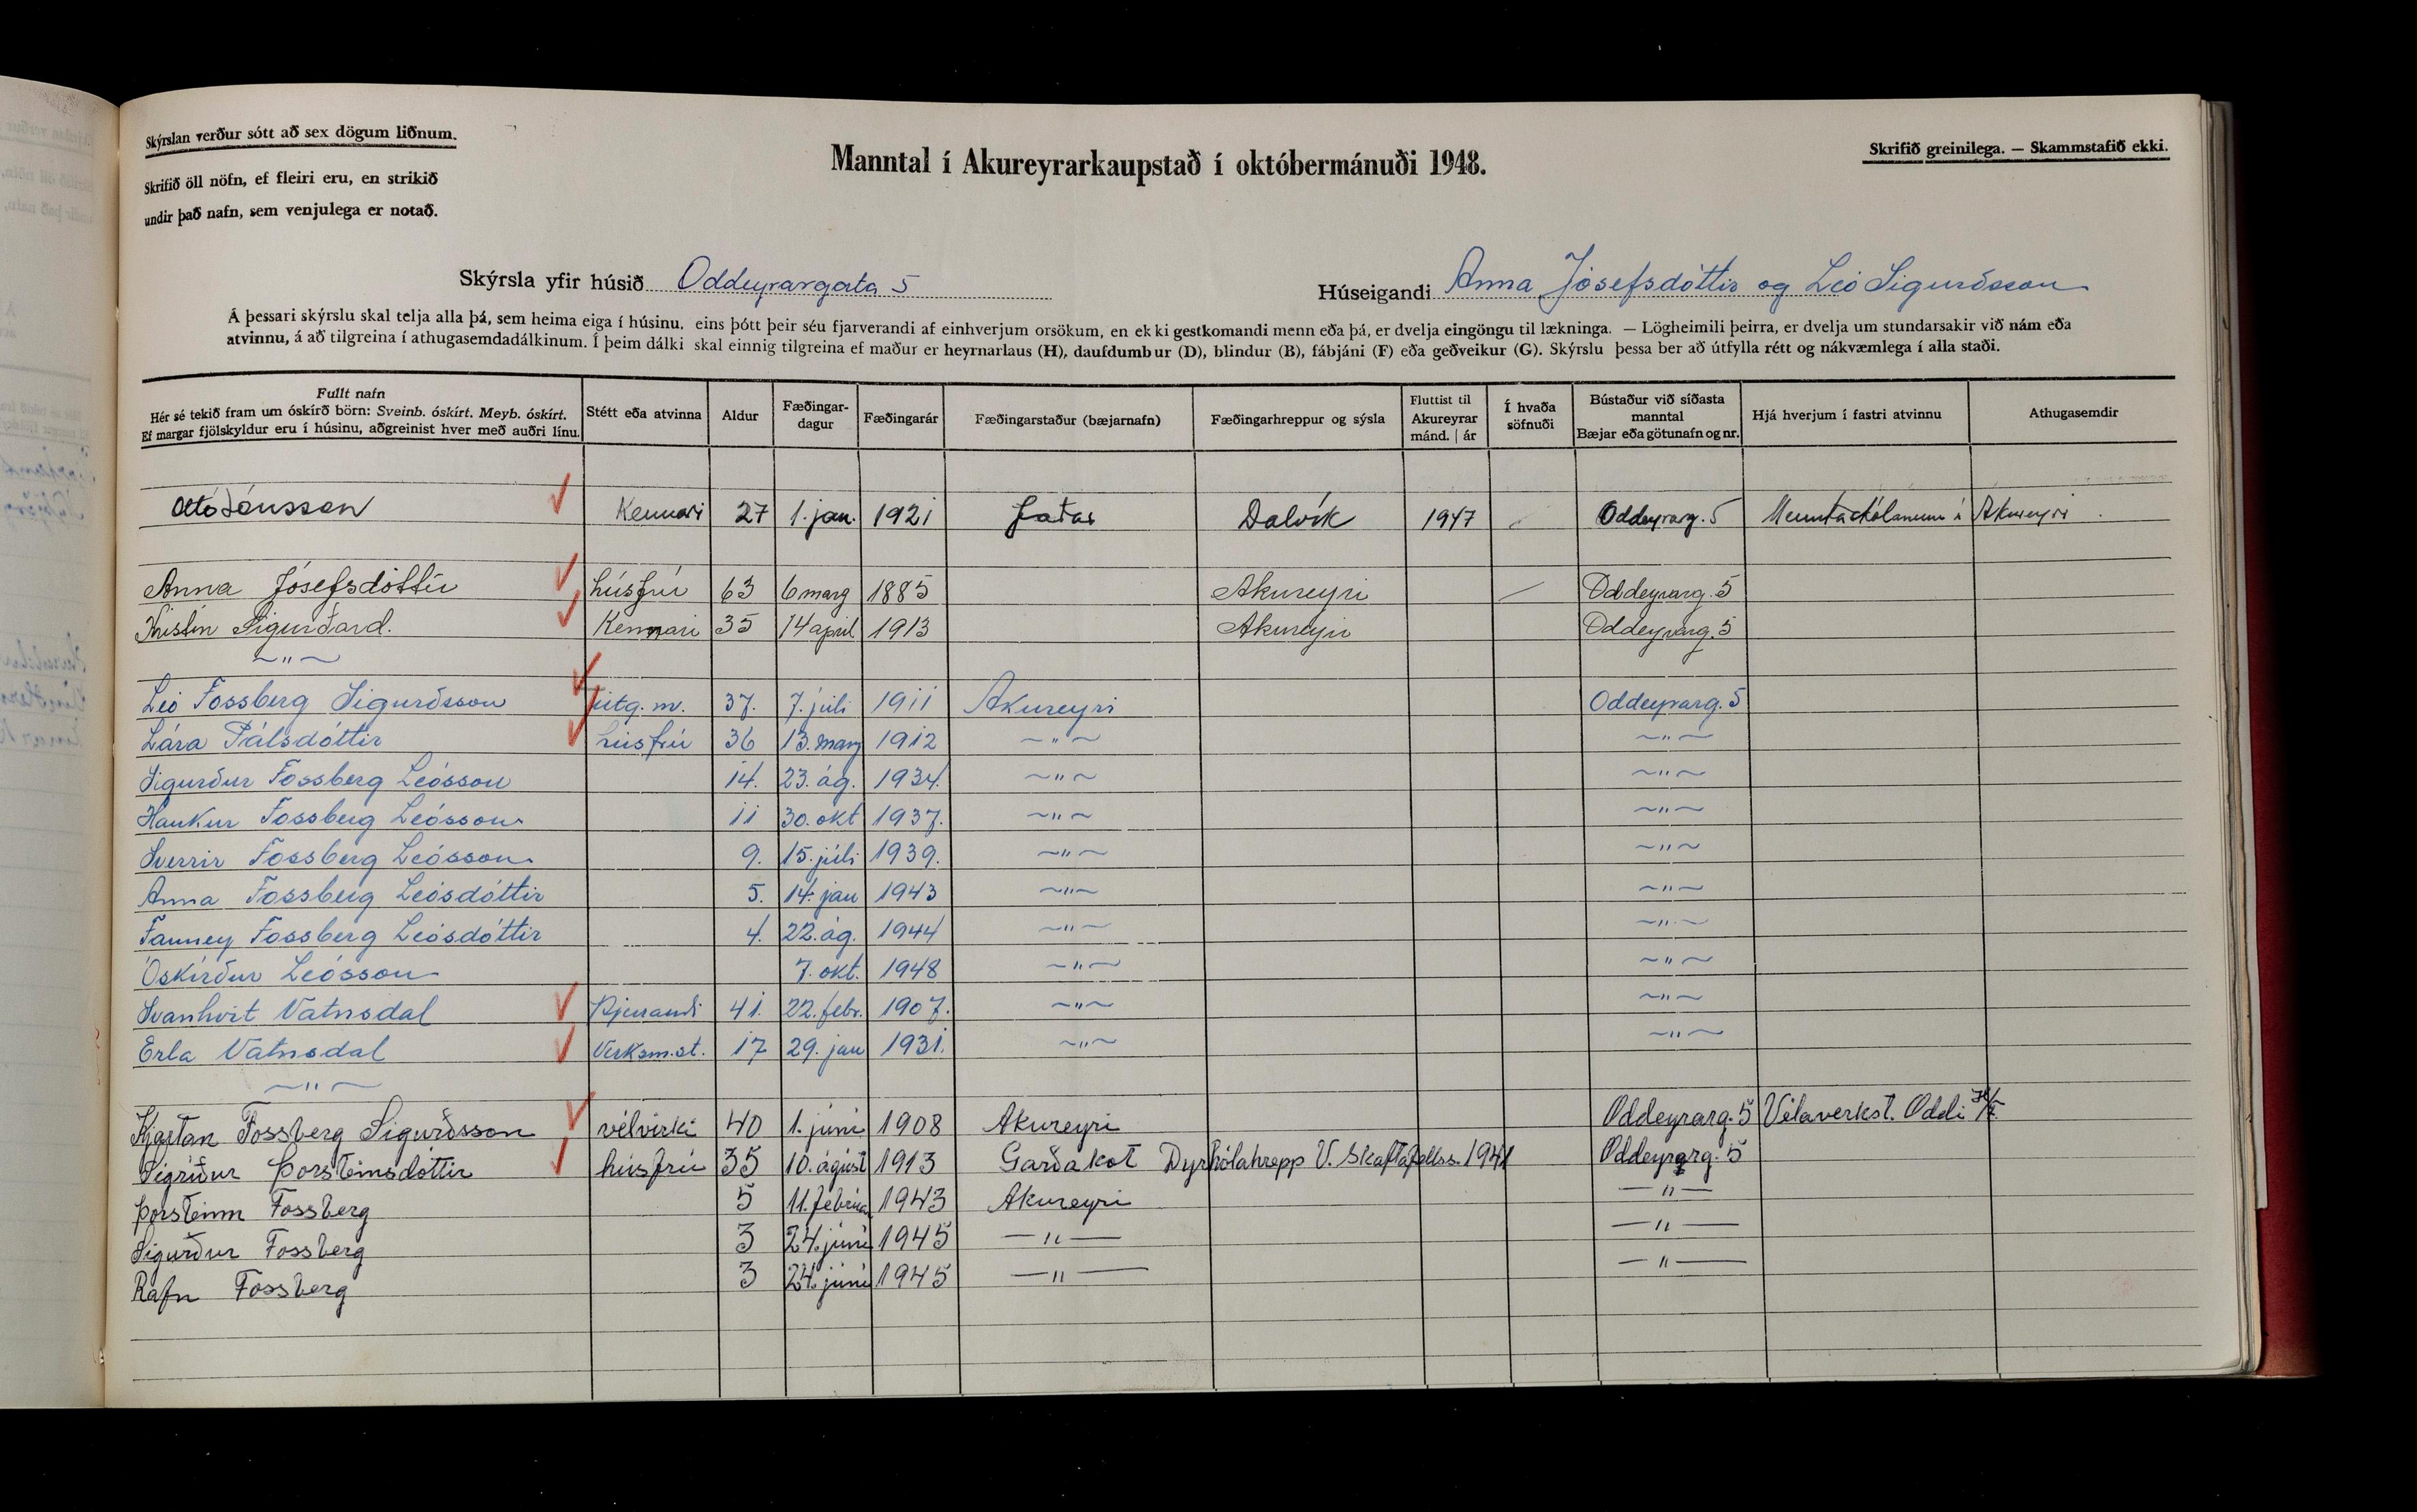 Skýrslan verður sótt að sex dögum liðnum.
Skrifið öll nöfn, ef fleiri eru, en strikið
undir það nafn, sem venjulega er notað.
Manntal í Akureyrarkaupstað í októbermánuði 1948.
Skrifið greinilega. — Skammstafið ekki.
Skýrsla yfir húsið Oddeyrargata 5
Húseigandi Anna Jósefsdóttir og Leó Sigurðsson
Á þessari skýrslu skal telja alla þá, sem heima eiga í húsinu, eins þótt þeir séu fjarverandi af einhverjum orsökum, en ekki gestkomandi menn eða þá, er dvelja eingöngu til lækninga. — Lögheimili þeirra, er dvelja um stundarsakir við nám eða
atvinnu, á að tilgreina í athugasemdadálkinum. Í þeim dálki skal einnig tilgreina ef maður er heyrnarlaus (H), daufdumbur (D), blindur (B), fábjáni (F) eða geðveikur (G). Skýrslu þessa ber að útfylla rétt og nákvæmlega í alla staði.
Fullt nafn
Hér sé tekið fram um óskírð börn: Sveinb. óskírt. Meyb. óskírt.
Ef margar fjölskyldur eru í húsinu, aðgreinist hver með auðri línu.
Stétt eða atvinna
Aldur
Fæðingar-
dagur
Fæðingarár
Fæðingarstaður (bæjarnafn)
Fæðingarhreppur og sýsla
Fluttist til
Akureyrar
mánd. | ár
Í hvaða
söfnuði
Bústaður við síðasta
manntal
Bæjar eða götunafn og nr.
Hjá hverjum í fastri atvinnu
Athugasemdir
Ottó Jónsson Kennari 27 1. jan. 1921 Dalvík 1947 Oddeyrarg. 5 Menntaskólanum á Akureyri
Anna Jósefsdóttir húsfrú 63 6 marz 1885 Akureyri Oddeyrarg. 5
Kristín Sigurðard. Kennari 35 14 apríl 1913 Akureyri Oddeyrarg. 5
~ " ~
Leó Fossberg Sigurðsson útg. m. 37. 7. júlí 1911 Akureyri Oddeyrarg. 5
Lára Pálsdóttir húsfrú 36 13. marz 1912 ~ " ~ ~ " ~
Sigurður Fossberg Leósson 14. 23. ág. 1934. ~ " ~ ~ " ~
Haukur Fossberg Leósson 11 30. okt 1937. ~ " ~ ~ " ~
Sverrir Fossberg Leósson 9. 15. júlí 1939. ~ " ~ ~ " ~
Anna Fossberg Leósdóttir 5. 14. jan 1943 ~ " ~ ~ " ~
Fanney Fossberg Leósdóttir 4. 22. ág. 1944 ~ " ~ ~ " ~
Óskírður Leósson 7. okt. 1948 ~ " ~ ~ " ~
Svanhvít Vatnsdal 41. 22. febr. 1907. ~ " ~ ~ " ~
Erla Vatnsdal Verksm.st. 17 29. jan 1931. ~ " ~ ~ " ~
~ " ~
Kjartan Fossberg Sigurðsson vélvirki 40 1. júní 1908 Akureyri Oddeyrarg. 5 Vélaverkst. Oddi
Sigríður Þorsteinsdóttir húsfrú 35 10. ágúst 1913 Garðakot Dyrhólahrepp V. Skaftafellss. 1941 Oddeyrarg. 5
Þorsteinn Fossberg 5 11. febrúar 1943 Akureyri — " —
Sigurður Fossberg 3 24. júní 1945 — " — — " —
Rafn Fossberg 3 24. júní 1945 — " — — " —